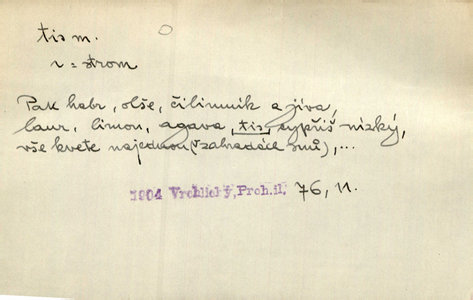 tis m.
1 = strom
Pak habr, olše, čilimník a jíva,
laur, limon, agava, tis, cypřiš nízký,
vše kvete najednou (v zahradách snů), ...
1904 Vrchlický, Proh. il. 76, 11.